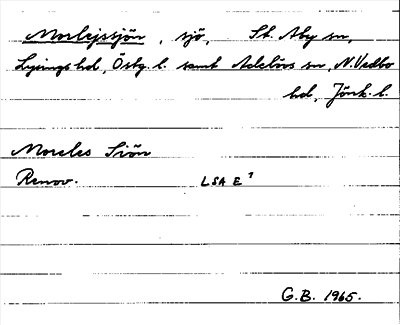 Morlejssjön, sjö, St. Aby sn,
Lysings hd, Östg. l. samt Adelövs sn, N. Vedbo
hd, Jönk. l.
Moreles Siön
Renov. LSA E 7
G.B. 1965.